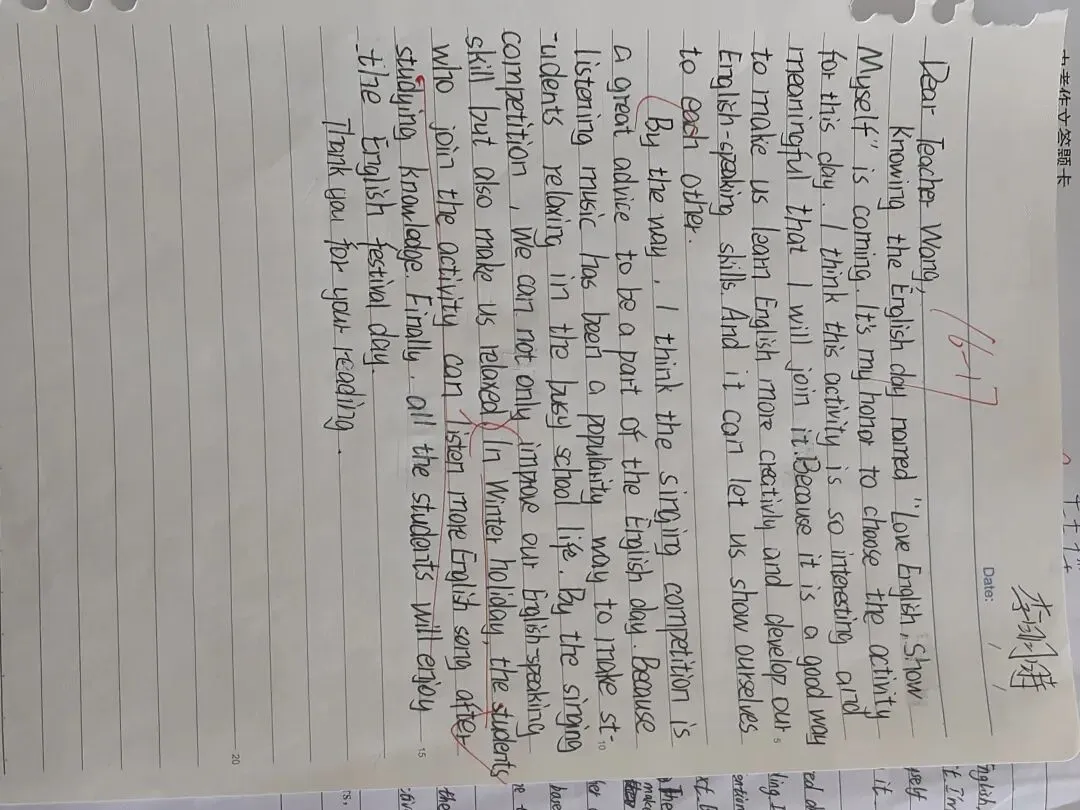 中考作文答题卡
Date:
16-17
Dear Teacher Wang,
Knowing the English day named "Love English, Show
Myself" is coming. It's my honor to choose the activity
for this day. I think this activity is so interesting and
meaningful that I will join it. Because it is a good way
to make us learn English more creativly and develop our
5
English-speaking skills. And it can let us show ourselves
to each other.
By the way, I think the singing competition is
a great advice to be a part of the English day. Because
listening music has been a popularity way to make st-
10
-udents relaxing in the busy school life. By the singing
competition, we can not only improve our English-speaking
skill but also make us relaxed. In Winter holiday, the students
who join the activity can listen more English song after
studying knowledge. Finally, all the students will enjoy
15
the English festival day.
Thank you for your reading.
20